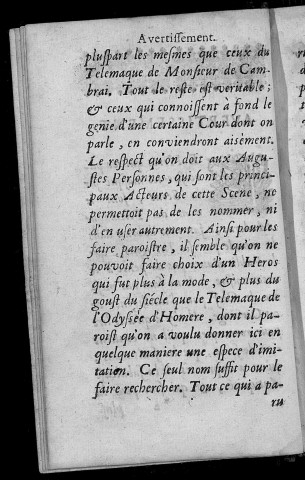 Avertissement.
pluspart les mesmes que ceux du
Telemaque de Monsieur de Cam-
brai. Tout le reste est veritable ;
& ceux qui connoissent à fond le
genie d'une certaine Cour dont on
parle, en conviendront aisément.
Le respect qu'on doit aux Augu-
stes Personnes, qui sont les princi-
paux Acteurs de cette Scene, ne
permettoit pas de les nommer, ni
d'en user autrement. Ainsi pour les
faire paroistre, il semble qu'on ne
pouvoit faire choix d'un Heros
qui fut plus à la mode, & plus du
goust du siécle que le Telemaque de
l'Odyssée d'Homere, dont il pa-
roist qu'on a voulu donner ici en
quelque maniere une espece d'imi-
tation. Ce seul nom suffit pour le
faire rechercher. Tout ce qui a pa-
ru